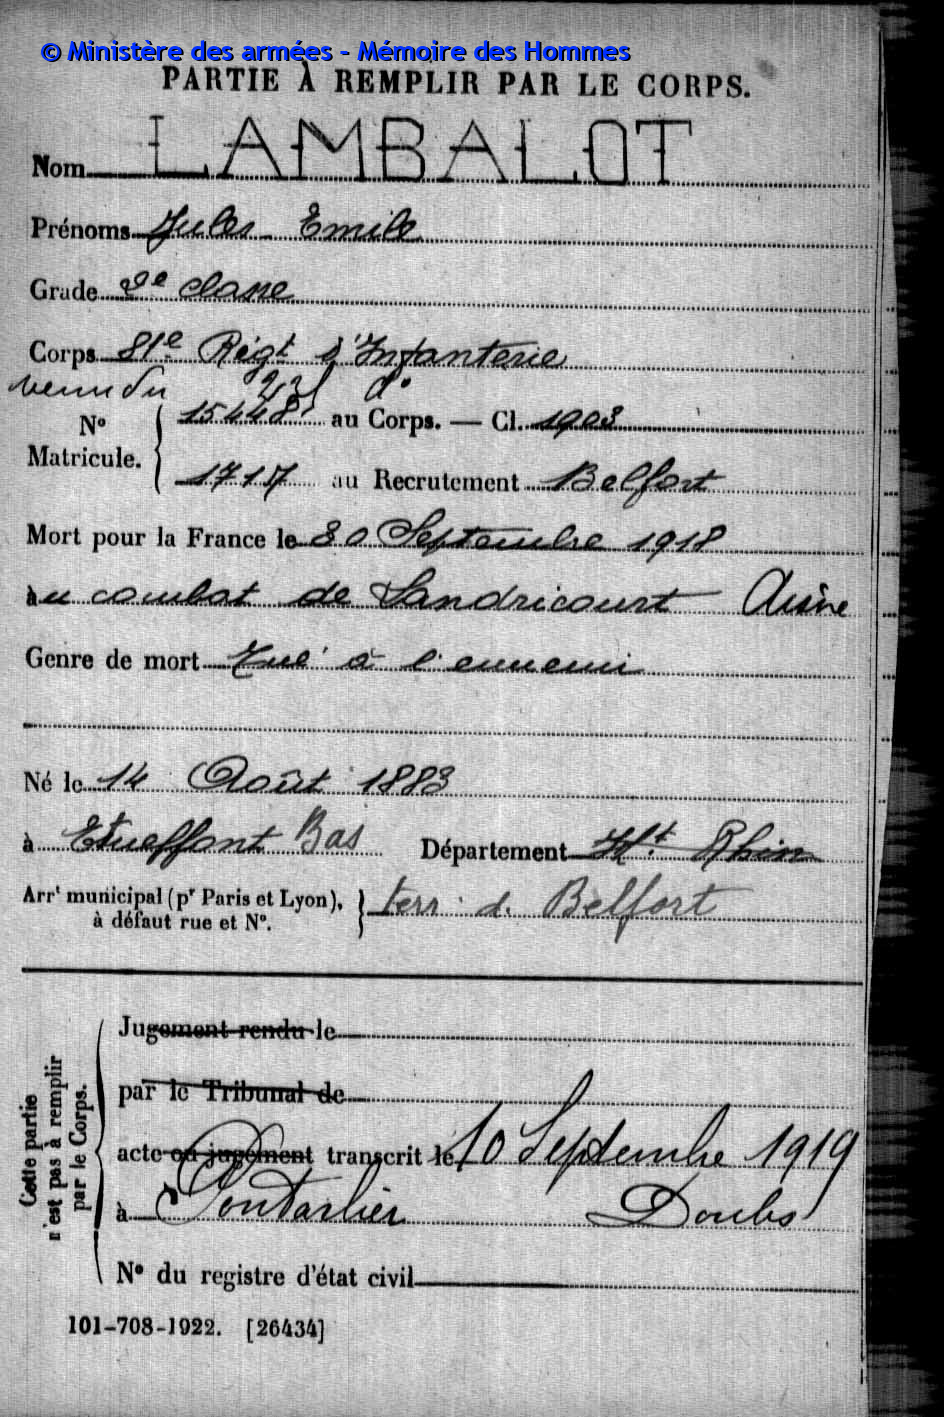 © Ministère des armées - Mémoire des Hommes
PARTIE À REMPLIR PAR LE CORPS.
Nom LAMBALOT
Prénoms Jules Emile
Grade 2e classe
Corps 81e Régt d'Infanterie
venu du d°
N° Matricule. 15448 au Corps. — Cl. 1903
1717 au Recrutement Belfort
Mort pour la France le 30 Septembre 1918
au combat de Landricourt Aisne
Genre de mort Tué à l'ennemi
Né le 14 Août 1883
à Etueffont Bas Département Ht Rhin
Arrt municipal (pr Paris et Lyon), à défaut rue et N°. terr. d. Belfort
Cette partie n'est pas à remplir par le Corps.
Jugement rendu le
par le Tribunal de
acte ou jugement transcrit le 10 Septembre 1919
à Pontarlier Doubs
N° du registre d'état civil
101-708-1922. [26434]